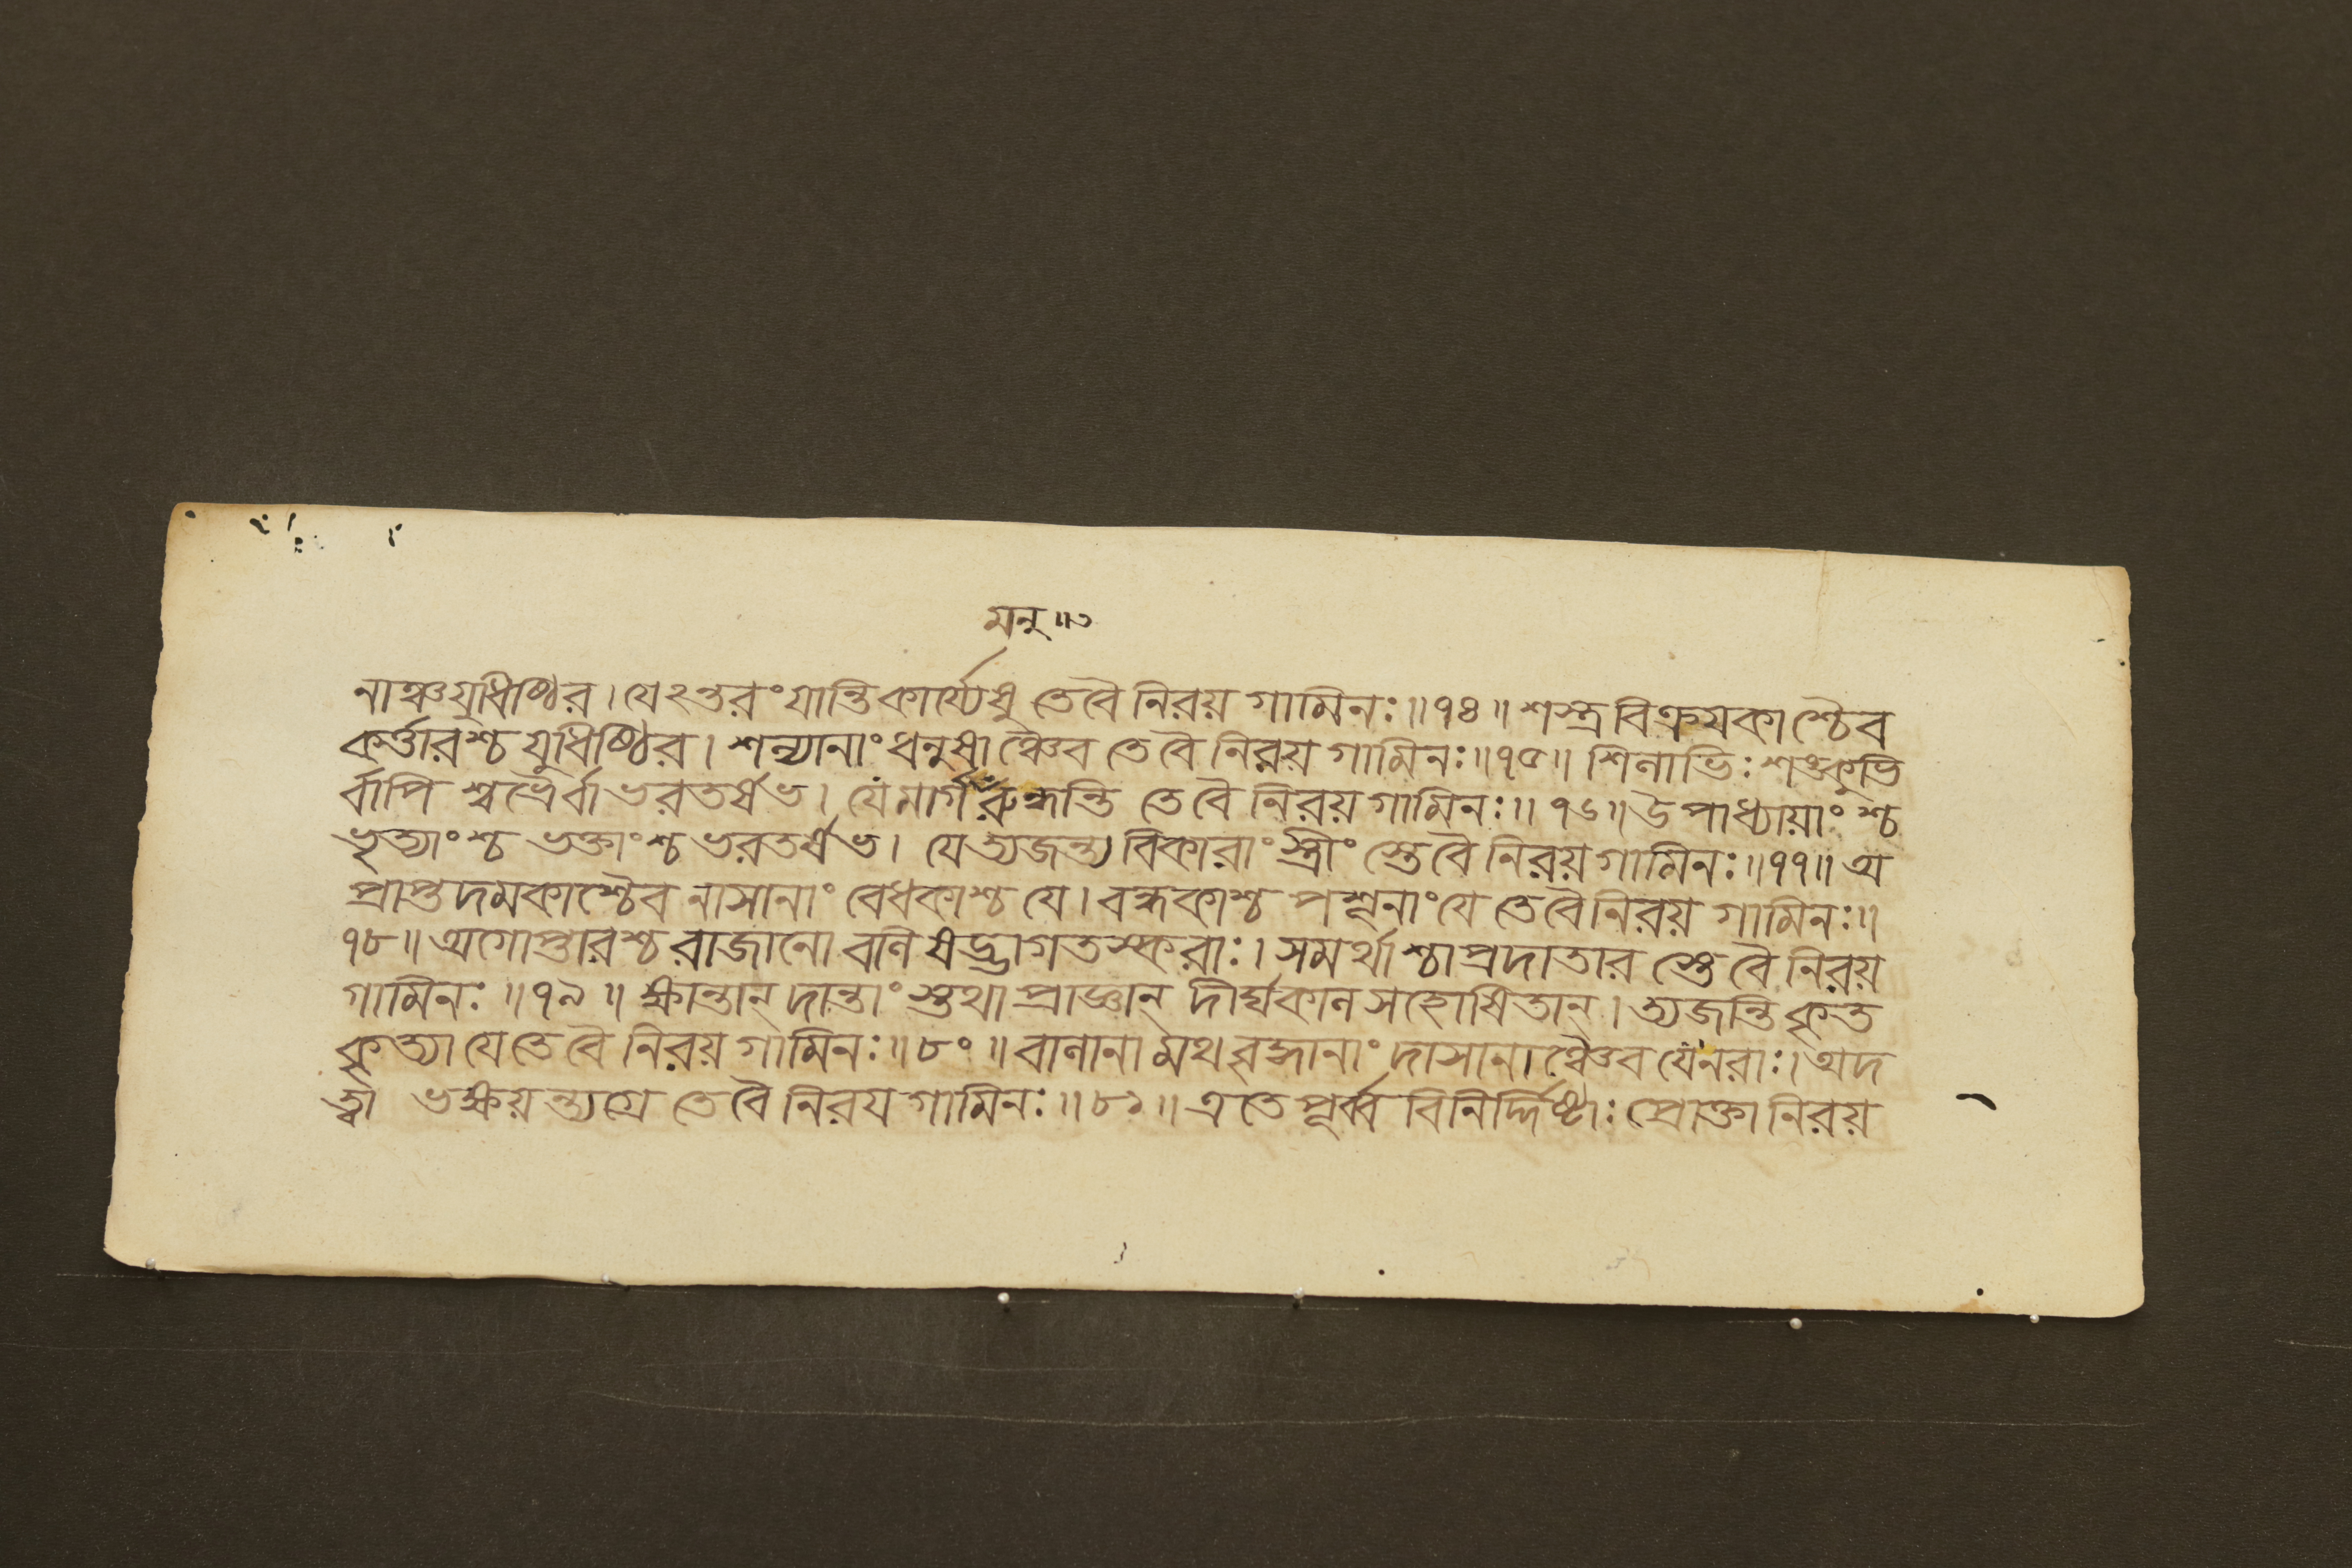 মনু॥৩
নাঞ্চ যুধিষ্ঠির। যেঽন্তরং যান্তি কার্য্যেষু তে বৈ নিরয় গামিনঃ॥৭৪॥ শস্ত্র বিক্রয়কাশ্চৈব
কর্ত্তারশ্চ যুধিষ্ঠির। শল্যানাং ধনুষাঞ্চৈব তে বৈ নিরয় গামিনঃ॥৭৫॥ শিলাভিঃ শঙ্কুভি
র্বাপি শ্বভ্রৈর্বা ভরতর্ষভ। যে মার্গং রুন্ধন্তি তে বৈ নিরয় গামিনঃ॥৭৬॥ উপাধ্যায়াংশ্চ
ভৃত্যাংশ্চ ভক্তাংশ্চ ভরতর্ষভ। যে ত্যজন্ত্য বিকারাং স্ত্রীং স্তে বৈ নিরয় গামিনঃ॥৭৭॥ অ
প্রাপ্ত দমকাশ্চৈব নাসানাং বেধকাশ্চ যে। বন্ধকাশ্চ পশূনাং যে তে বৈ নিরয় গামিনঃ॥
৭৮॥ অগোপ্তারশ্চ রাজানো বলি ষড্ভাগ তস্করাঃ। সমর্থাশ্চাপ্রদাতার স্তে বৈ নিরয়
গামিনঃ॥৭৯॥ ক্ষান্তান্ দান্তাং স্তথা প্রাজ্ঞান্ দীর্ঘকাল সহোষিতান্। ত্যজন্তি কৃত
কৃত্যা যে তে বৈ নিরয় গামিনঃ॥৮০॥ বালানা মথ বৃদ্ধানাং দাসানাঞ্চৈব যে নরাঃ। অদ
ত্ত্বা ভক্ষয়ন্ত্যগ্রে তে বৈ নিরয় গামিনঃ॥৮১॥ এতে পূর্ব্ব বিনির্দ্দিষ্টাঃ প্রোক্তা নিরয়